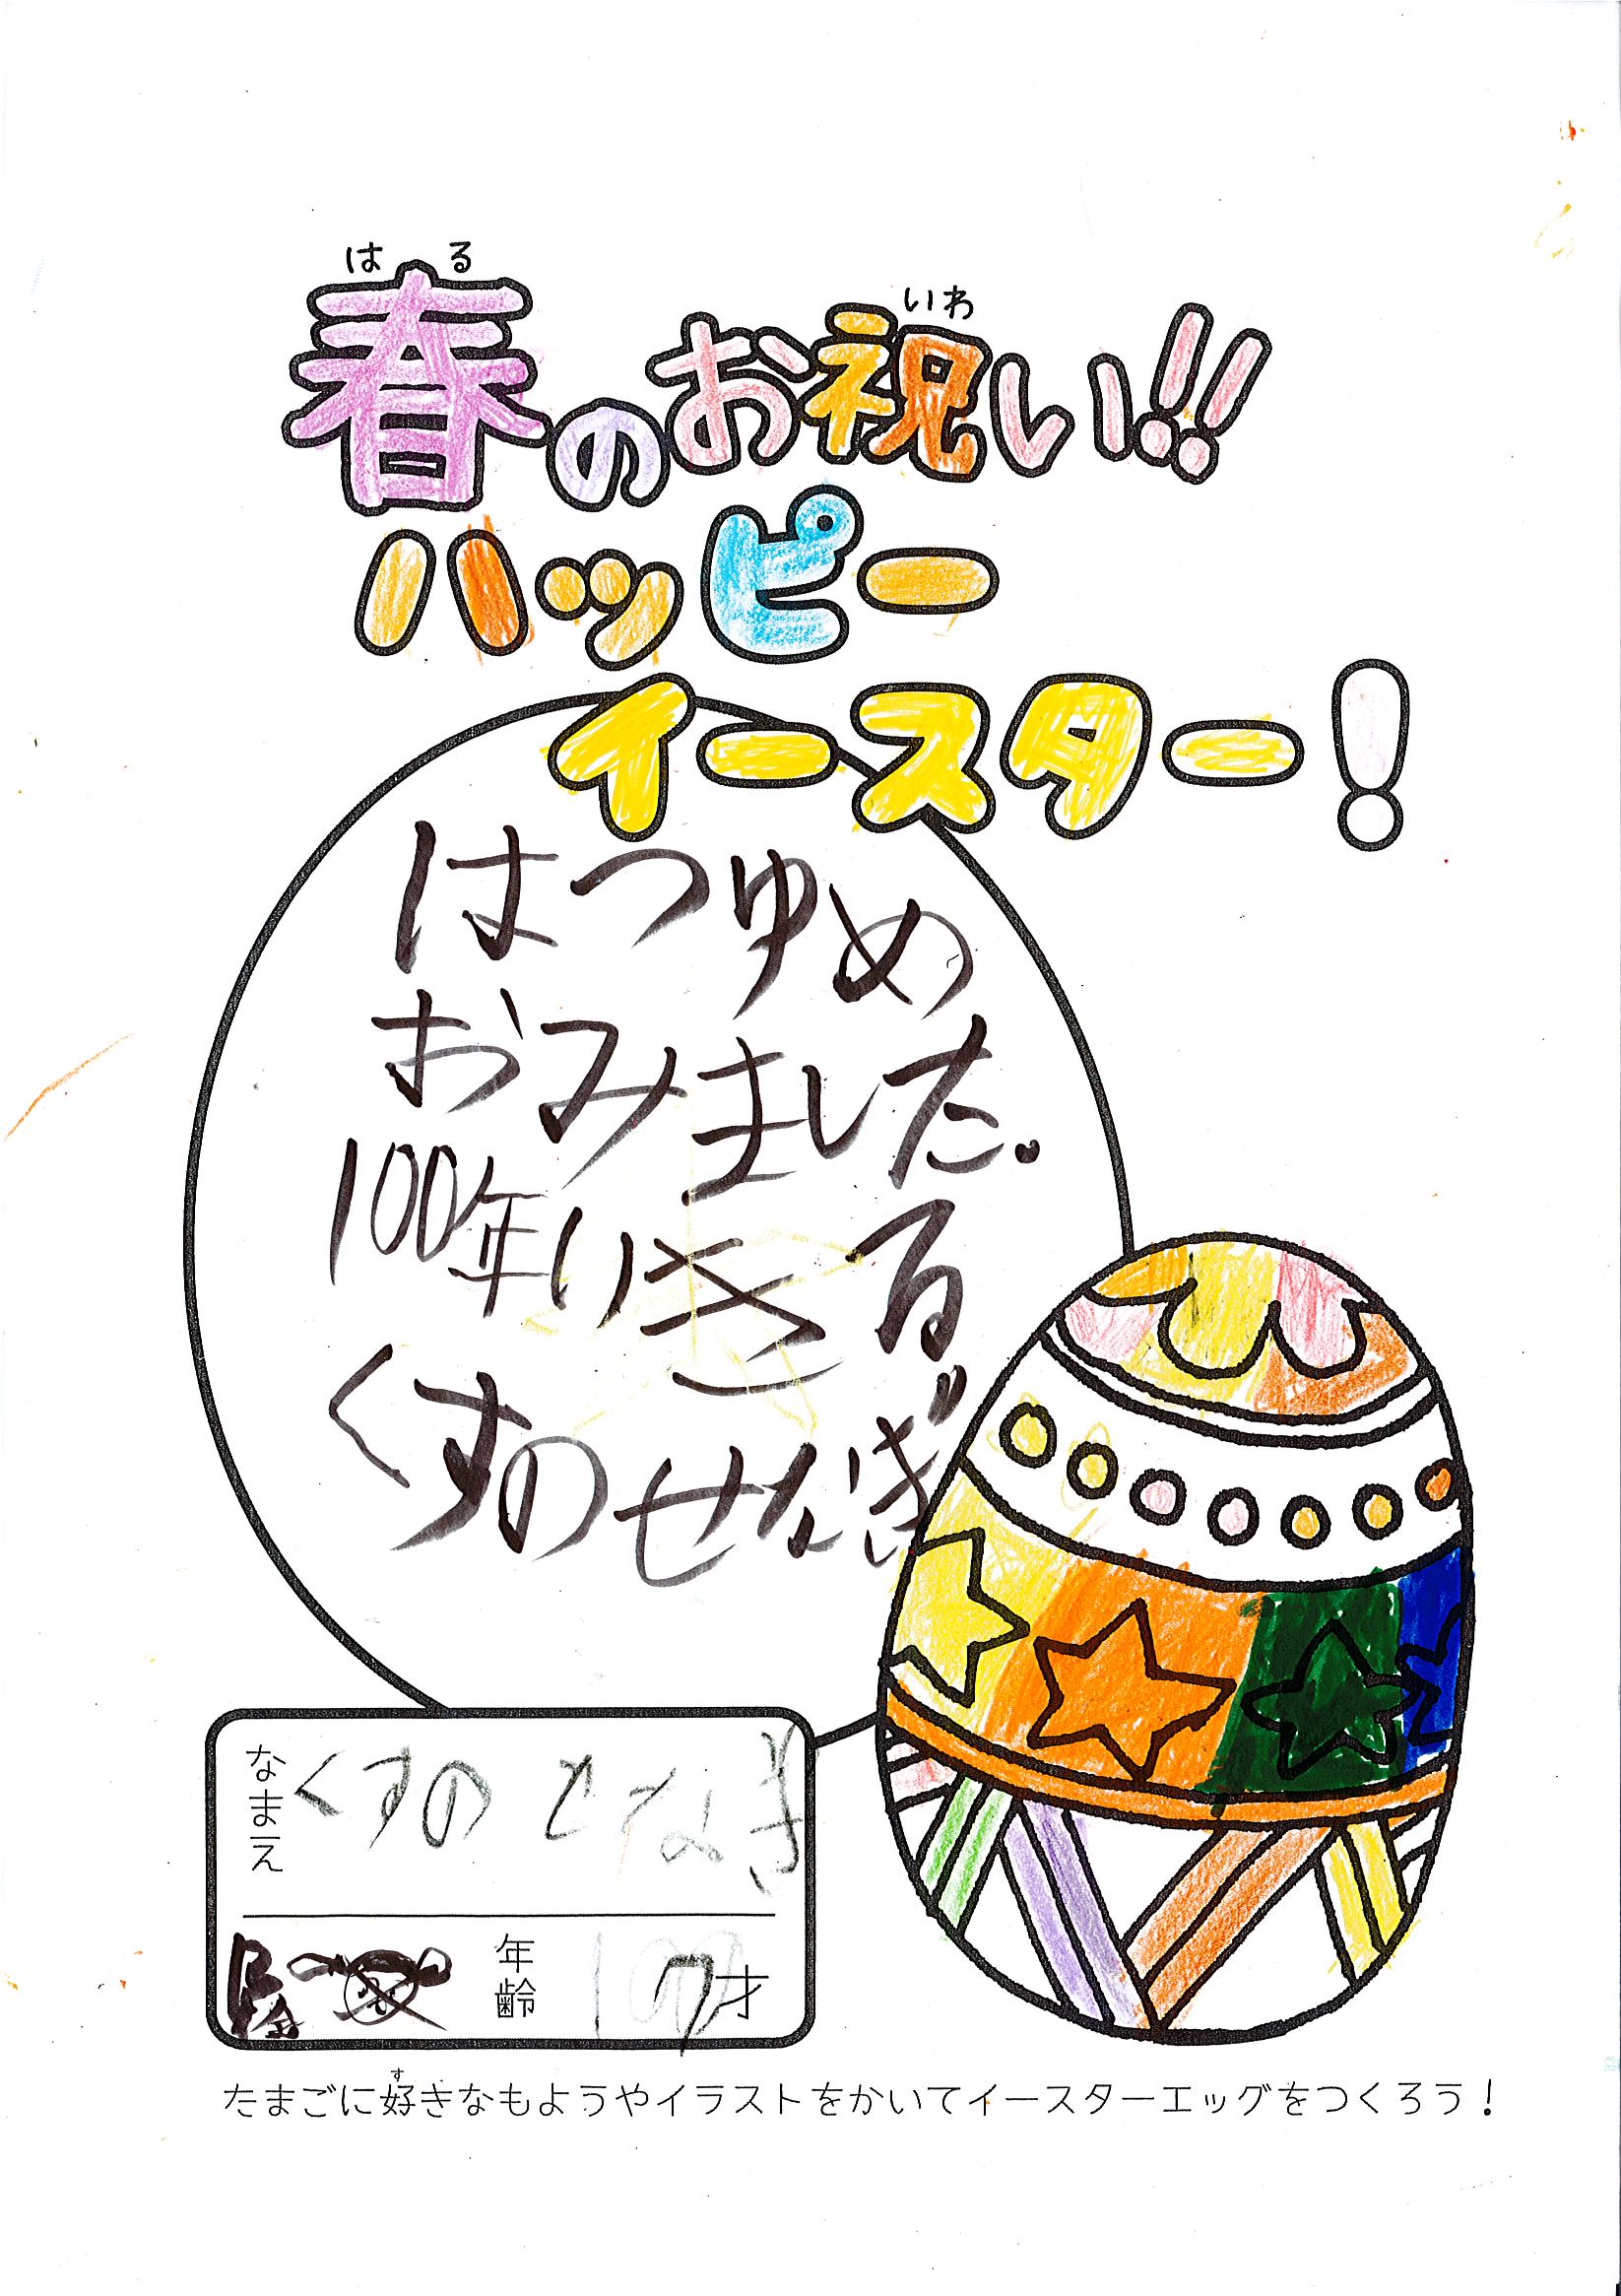 はる
春のお祝い!!
いわ
ハッピー
イースター!
はつゆめ
おみました。
100年いきる
くすのせなぎ
なまえ くすのせなぎ
年齢 7才
す
たまごに好きなもようやイラストをかいてイースターエッグをつくろう!